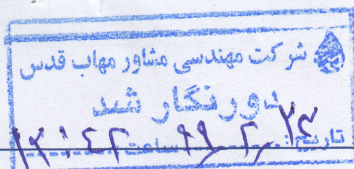 شرکت مهندسی مشاور مهاب قدس
دورنگار شد
تاریخ: ۹۹/۲/۲۳ ساعت ۱۲:۴۲